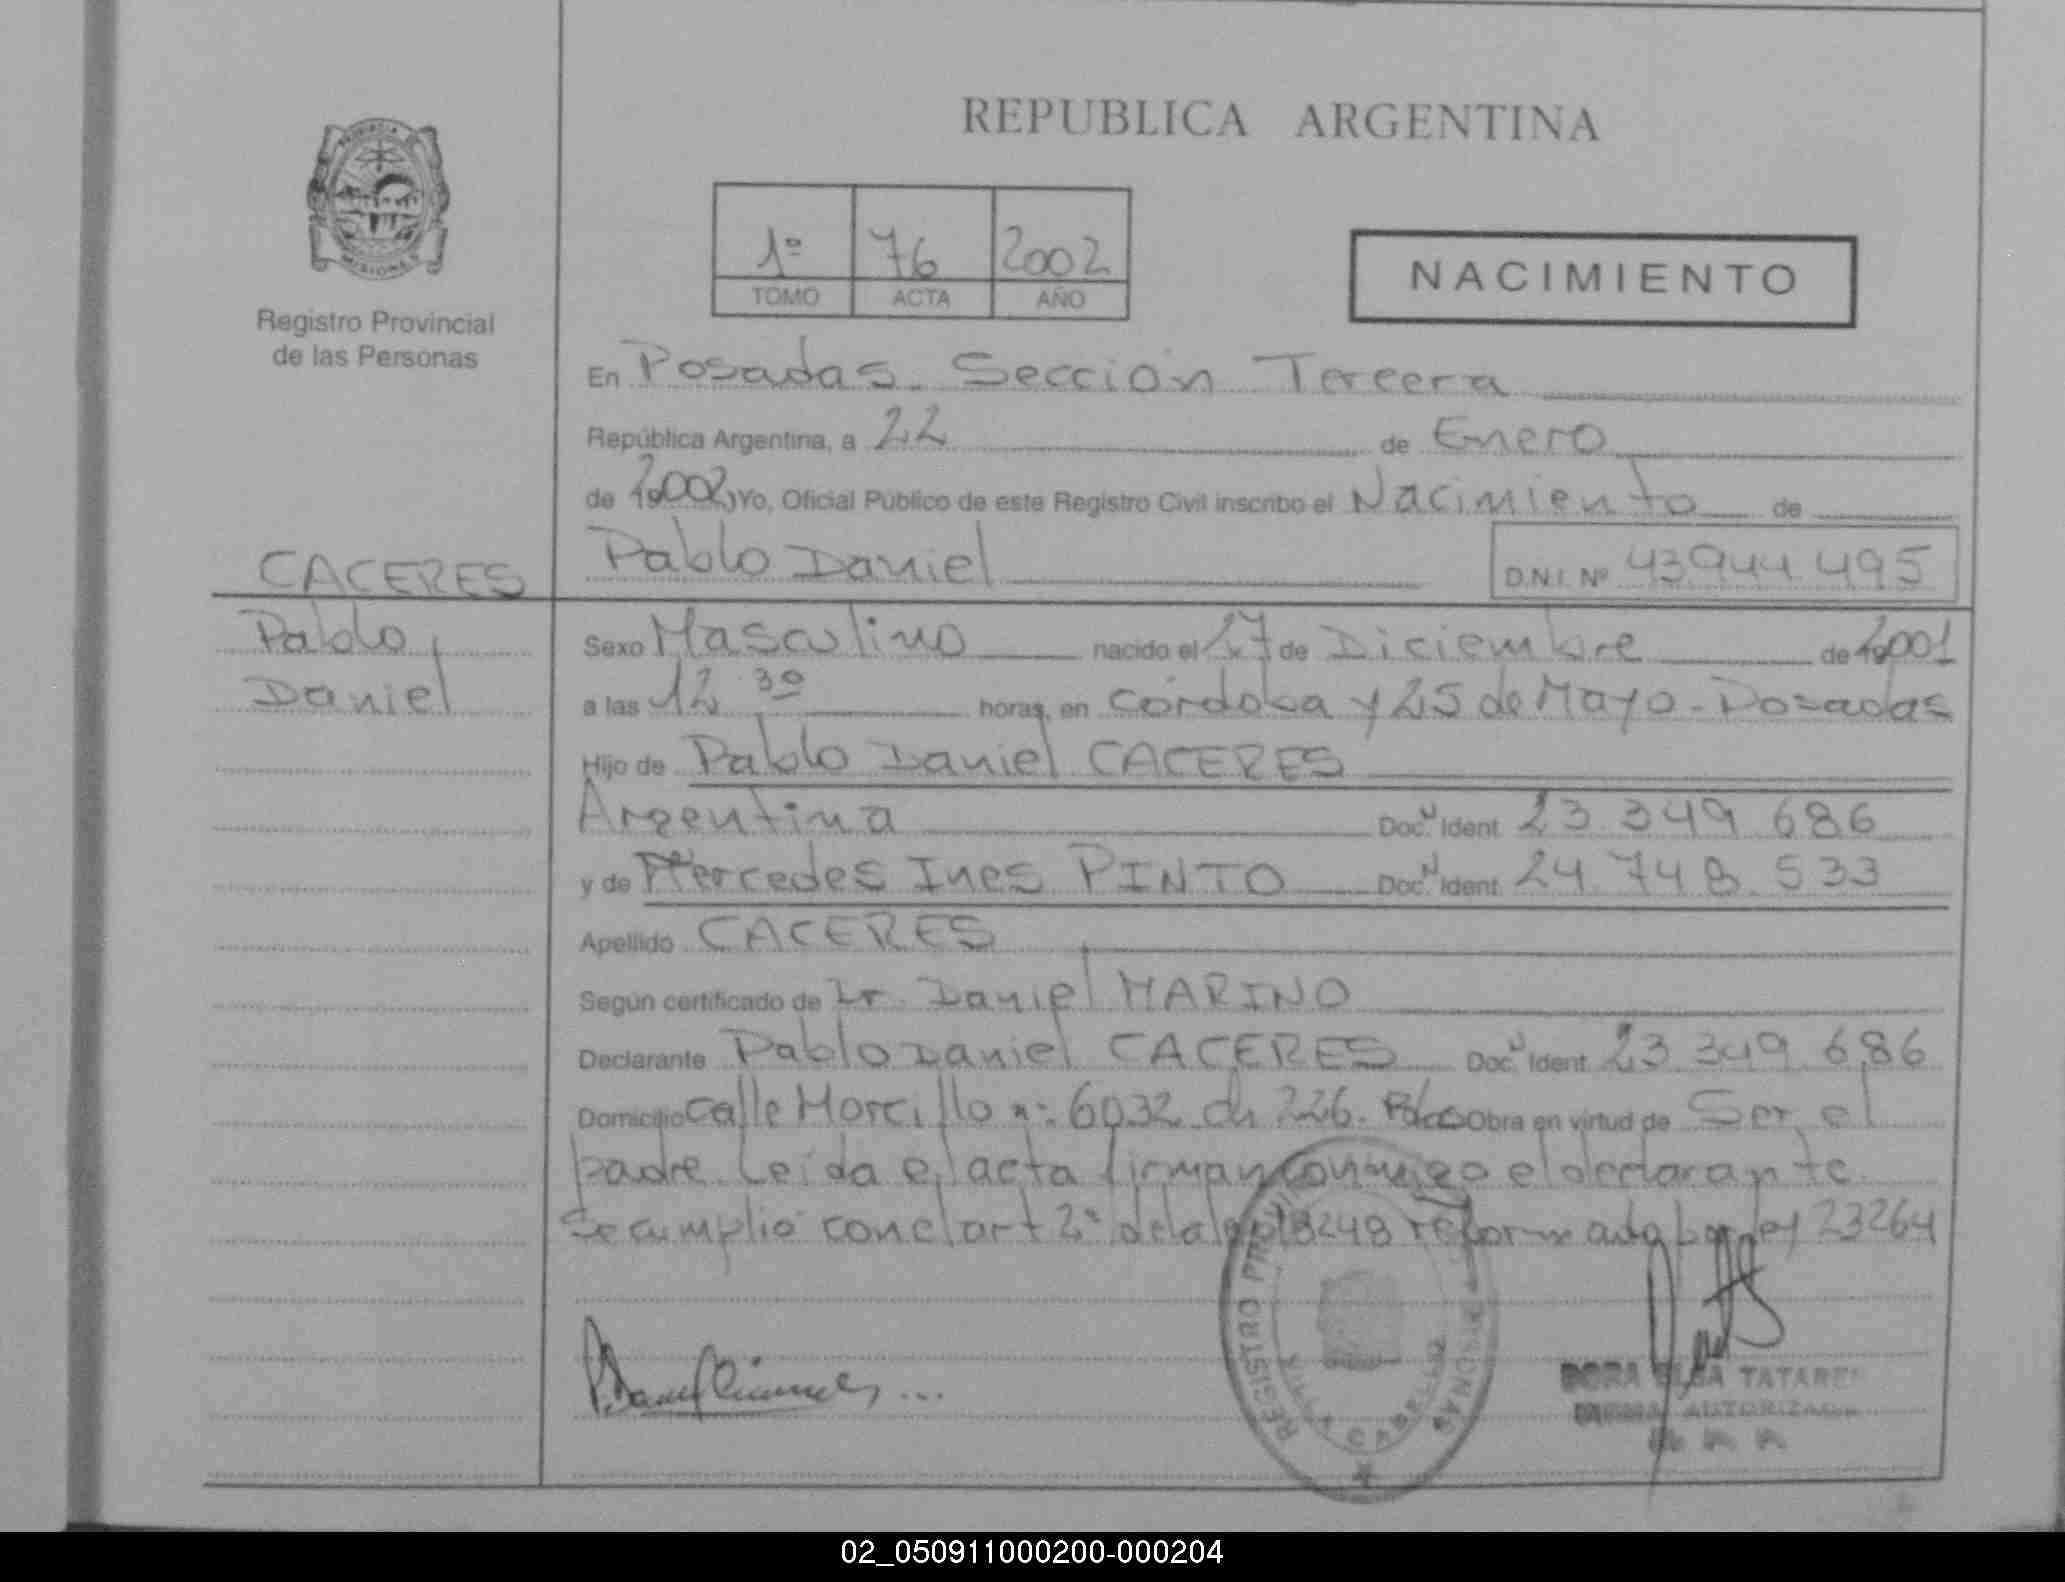 REPUBLICA ARGENTINA
PROVINCIA
MISIONES
Registro Provincial
de las Personas
1º 76 2002
TOMO ACTA AÑO
NACIMIENTO
En Posadas Sección Tercera
República Argentina, a 22 de Enero
de 2002, Yo, Oficial Público de este Registro Civil inscribo el Nacimiento de
Pablo Daniel D.N.I. Nº 43944495
CACERES
Pablo
Daniel
Sexo Masculino nacido el 27 de Diciembre de 2001
a las 12 30 horas, en Córdoba y 25 de Mayo - Posadas
Hijo de Pablo Daniel CACERES
Argentina Doc. Ident 23.349.686
y de Mercedes Ines PINTO Doc. Ident. 24.748.533
Apellido CACERES
Según certificado de Dr. Daniel MARINO
Declarante Pablo Daniel CACERES Doc. Ident. 23 349 686
Domicilio calle Morcillo nº 6032 ch 226. Obra en virtud de Ser el
padre Leída el acta firman conmigo el declarante
Se cumplió con el art 2º de la ley 18248 reformada por ley 23264
REGISTRO PERSONAS
VILLA CABELLO
DORA ELSA TATAREN
FIRMA AUTORIZADA
02_050911000200-000204